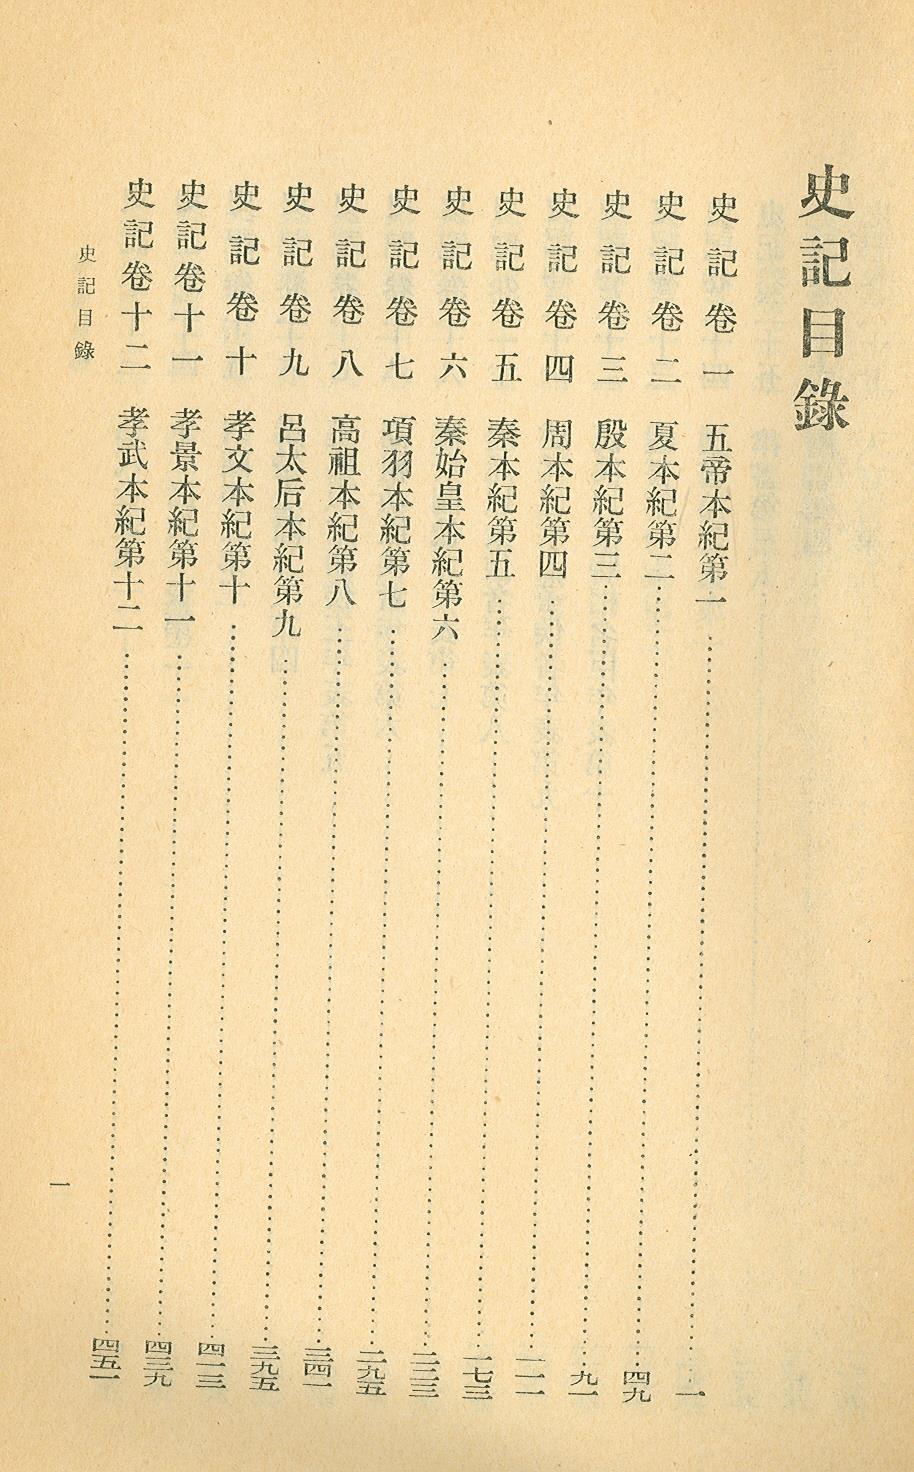 史記目錄
史記卷一 五帝本紀第一……一
史記卷二 夏本紀第二……四九
史記卷三 殷本紀第三……九一
史記卷四 周本紀第四……一一一
史記卷五 秦本紀第五……一七三
史記卷六 秦始皇本紀第六……二二三
史記卷七 項羽本紀第七……二九五
史記卷八 高祖本紀第八……三四一
史記卷九 呂太后本紀第九……三九五
史記卷十 孝文本紀第十……四一三
史記卷十一 孝景本紀第十一……四三九
史記卷十二 孝武本紀第十二……四五一
史記目錄
一